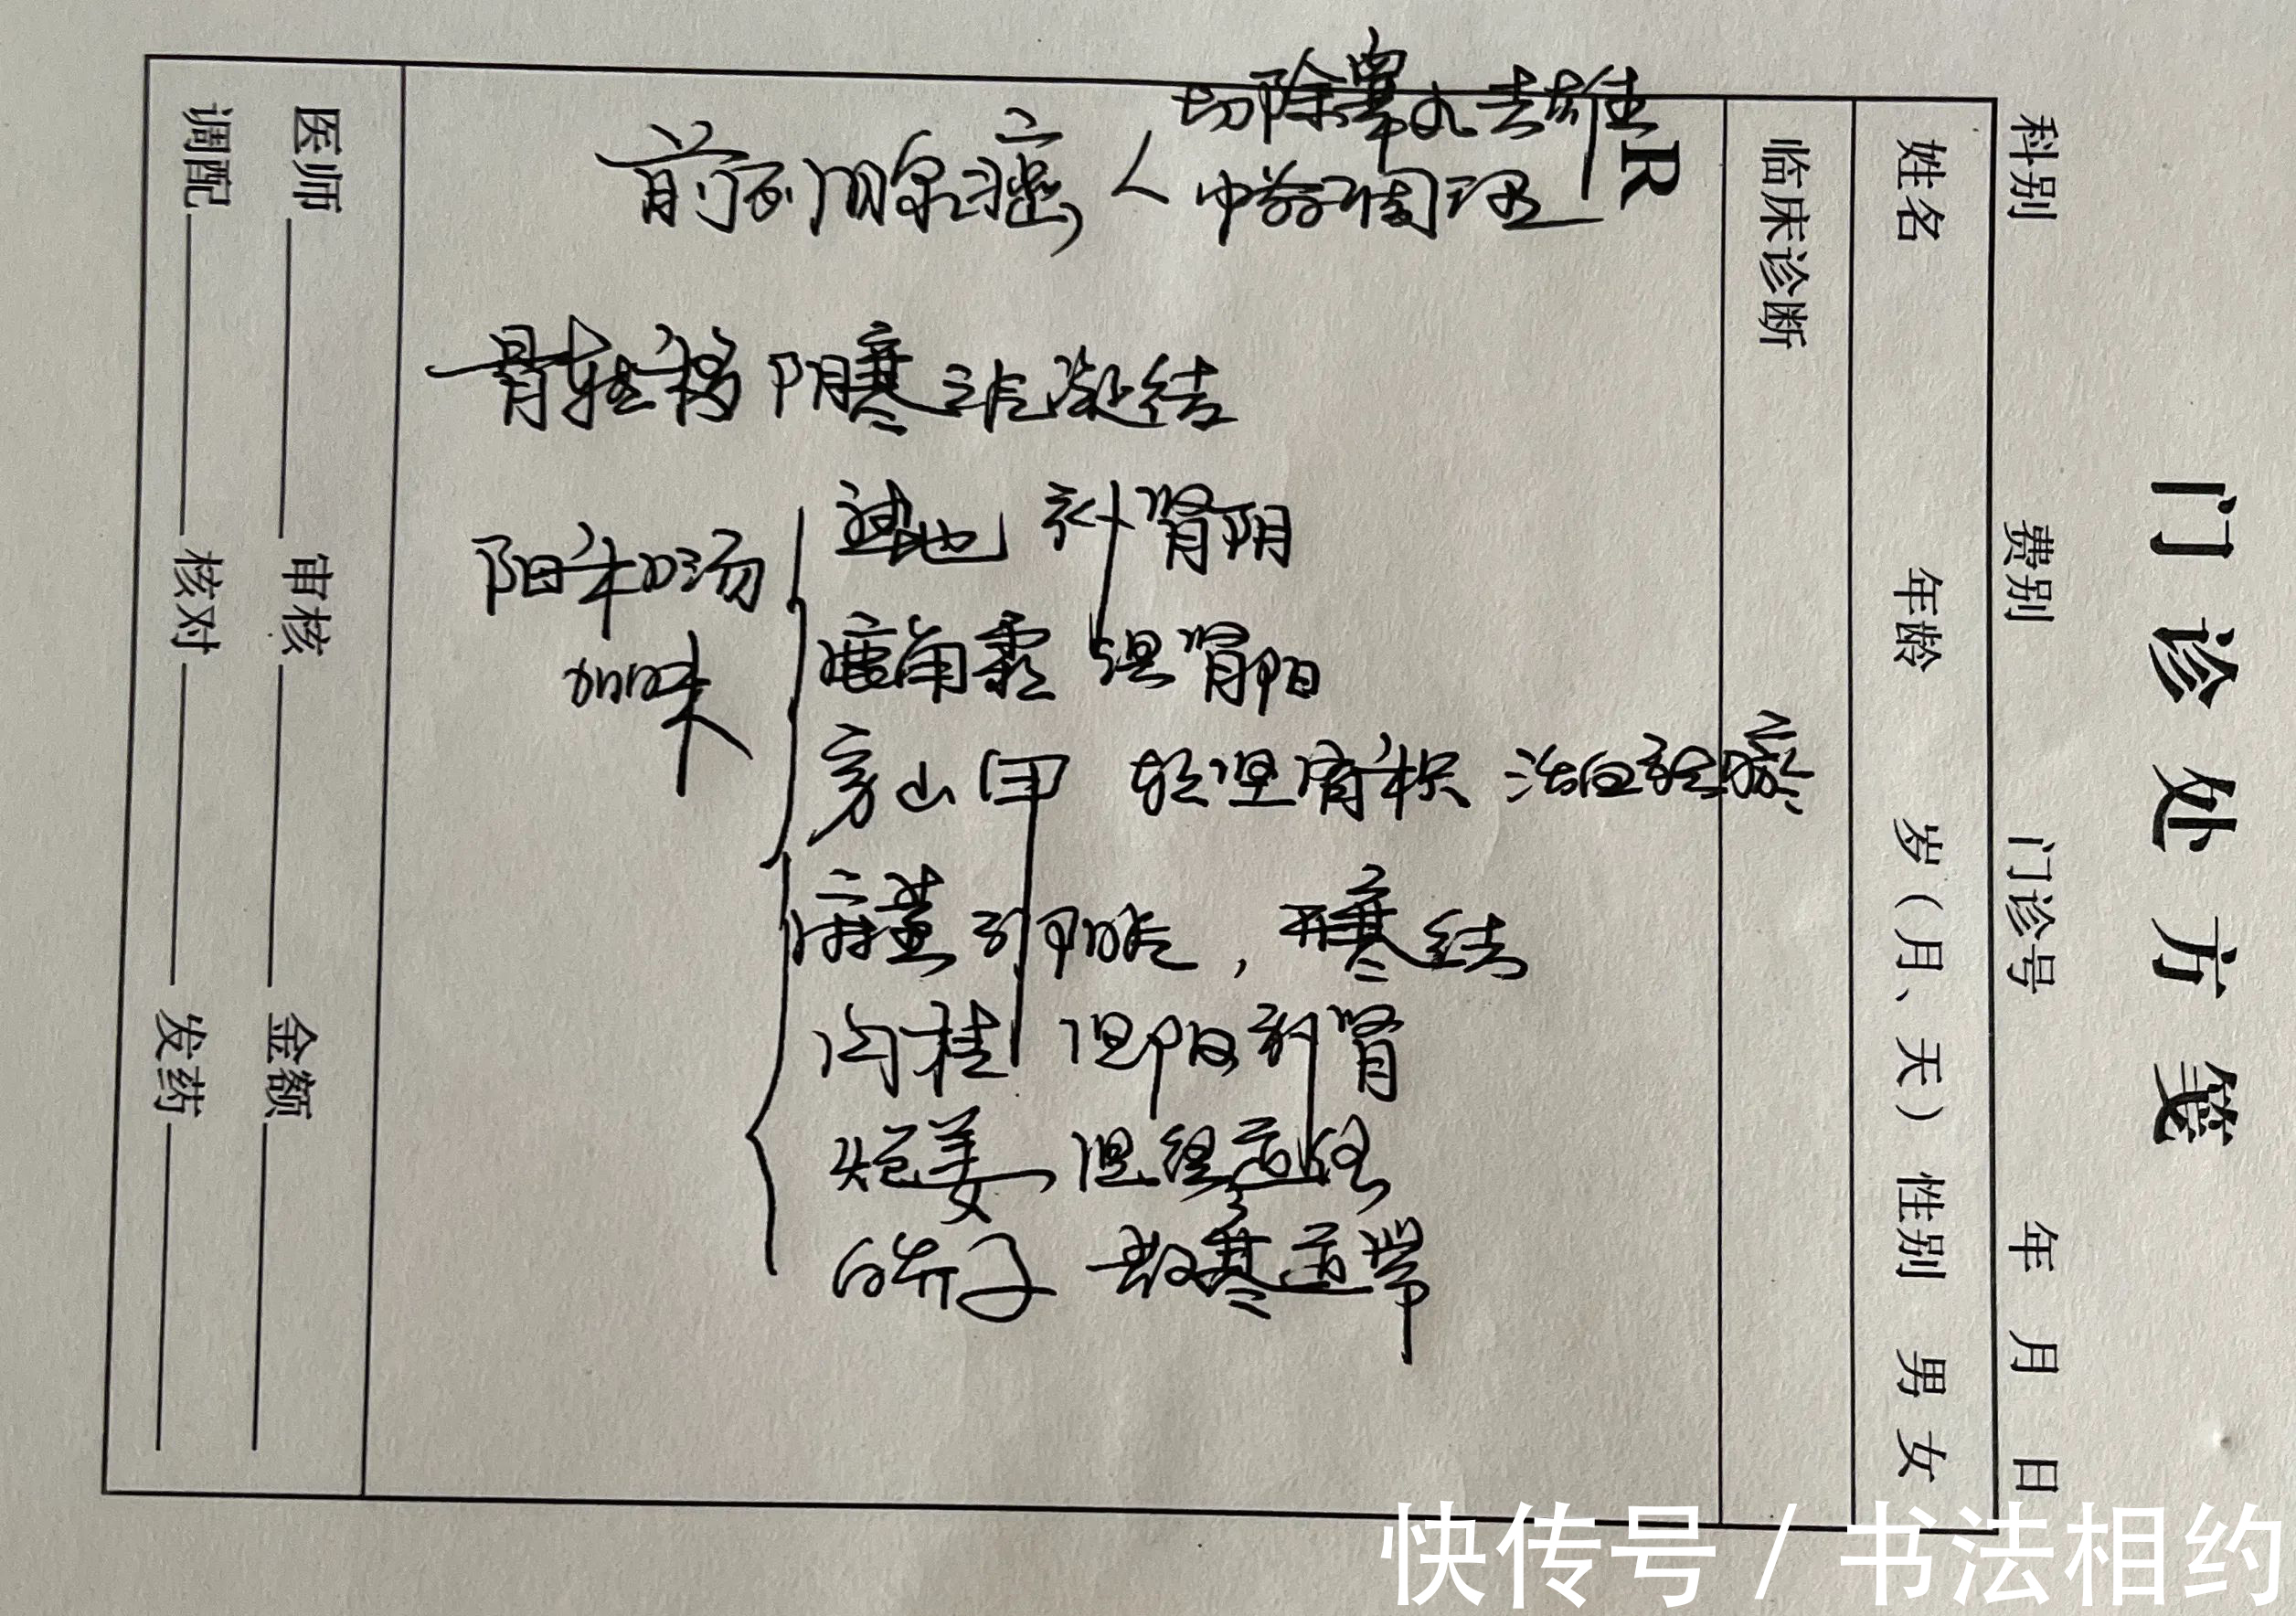 门诊处方笺
科别 费别 门诊号 年 月 日
姓名 年龄 岁（月、天） 性别 男 女
临床诊断
R
切除睾丸去雄
前列腺癌 中药调理
骨转移 阴寒之凝结
阳和汤加味
熟地 补肾阴
鹿角霜 温肾阳
穿山甲 软坚消积 活血
麻黄 引阳，开寒结
肉桂 温阳补肾
炮姜 温经通络
白芥子 散寒通滞
医师 审核 金额
调配 核对 发药
快传号 / 书法相约